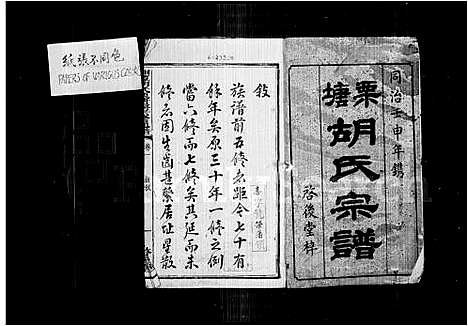 紙張不同色
PAPERS OF VARIOUS COLOR
同治壬申年鐫
栗塘胡氏宗譜
啓後堂梓
敘
族譜前五修之距今七十有
餘年矣原三十年一修之例
當六修而七修矣其延而未
修者因生齒甚繁居址星散